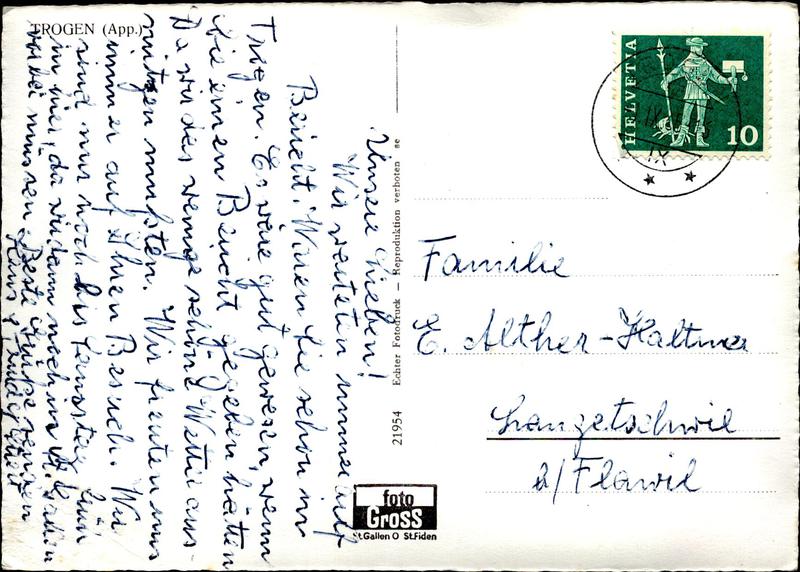 TROGEN (App.)
Unsere Lieben!
Wir warteten immer auf
Bericht. Waren Sie schon in
Trogen. Es wäre gut gewesen, wenn
Sie einen Bericht gegeben hätten
Da wir das wenige schöne Wetter aus-
nützen mussten. Wir freuten uns
immer auf Ihren Besuch. Wir
sind nur noch bis Samstag
in hier, da wir dann noch in St. Gallen
vorbei müssen. Beste Grüsse senden
Hans &
21954 Echter Fotodruck — Reproduktion verboten se
foto
Gross
St.Gallen O St.Fiden
HELVETIA
10
IX
Familie
E. Alther-Haltiner
Langetschwil
b/Flawil